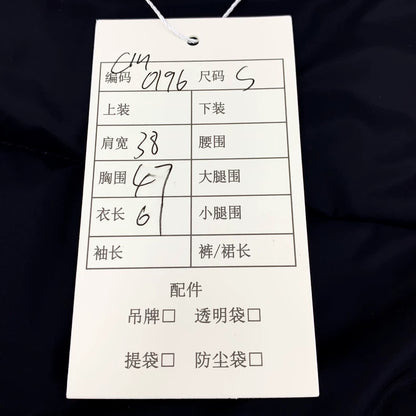 Cm
编码 0196 尺码 S
上装 下装
肩宽 38 腰围
胸围 47 大腿围
衣长 61 小腿围
袖长 裤/裙长
配件
吊牌□ 透明袋□
提袋□ 防尘袋□